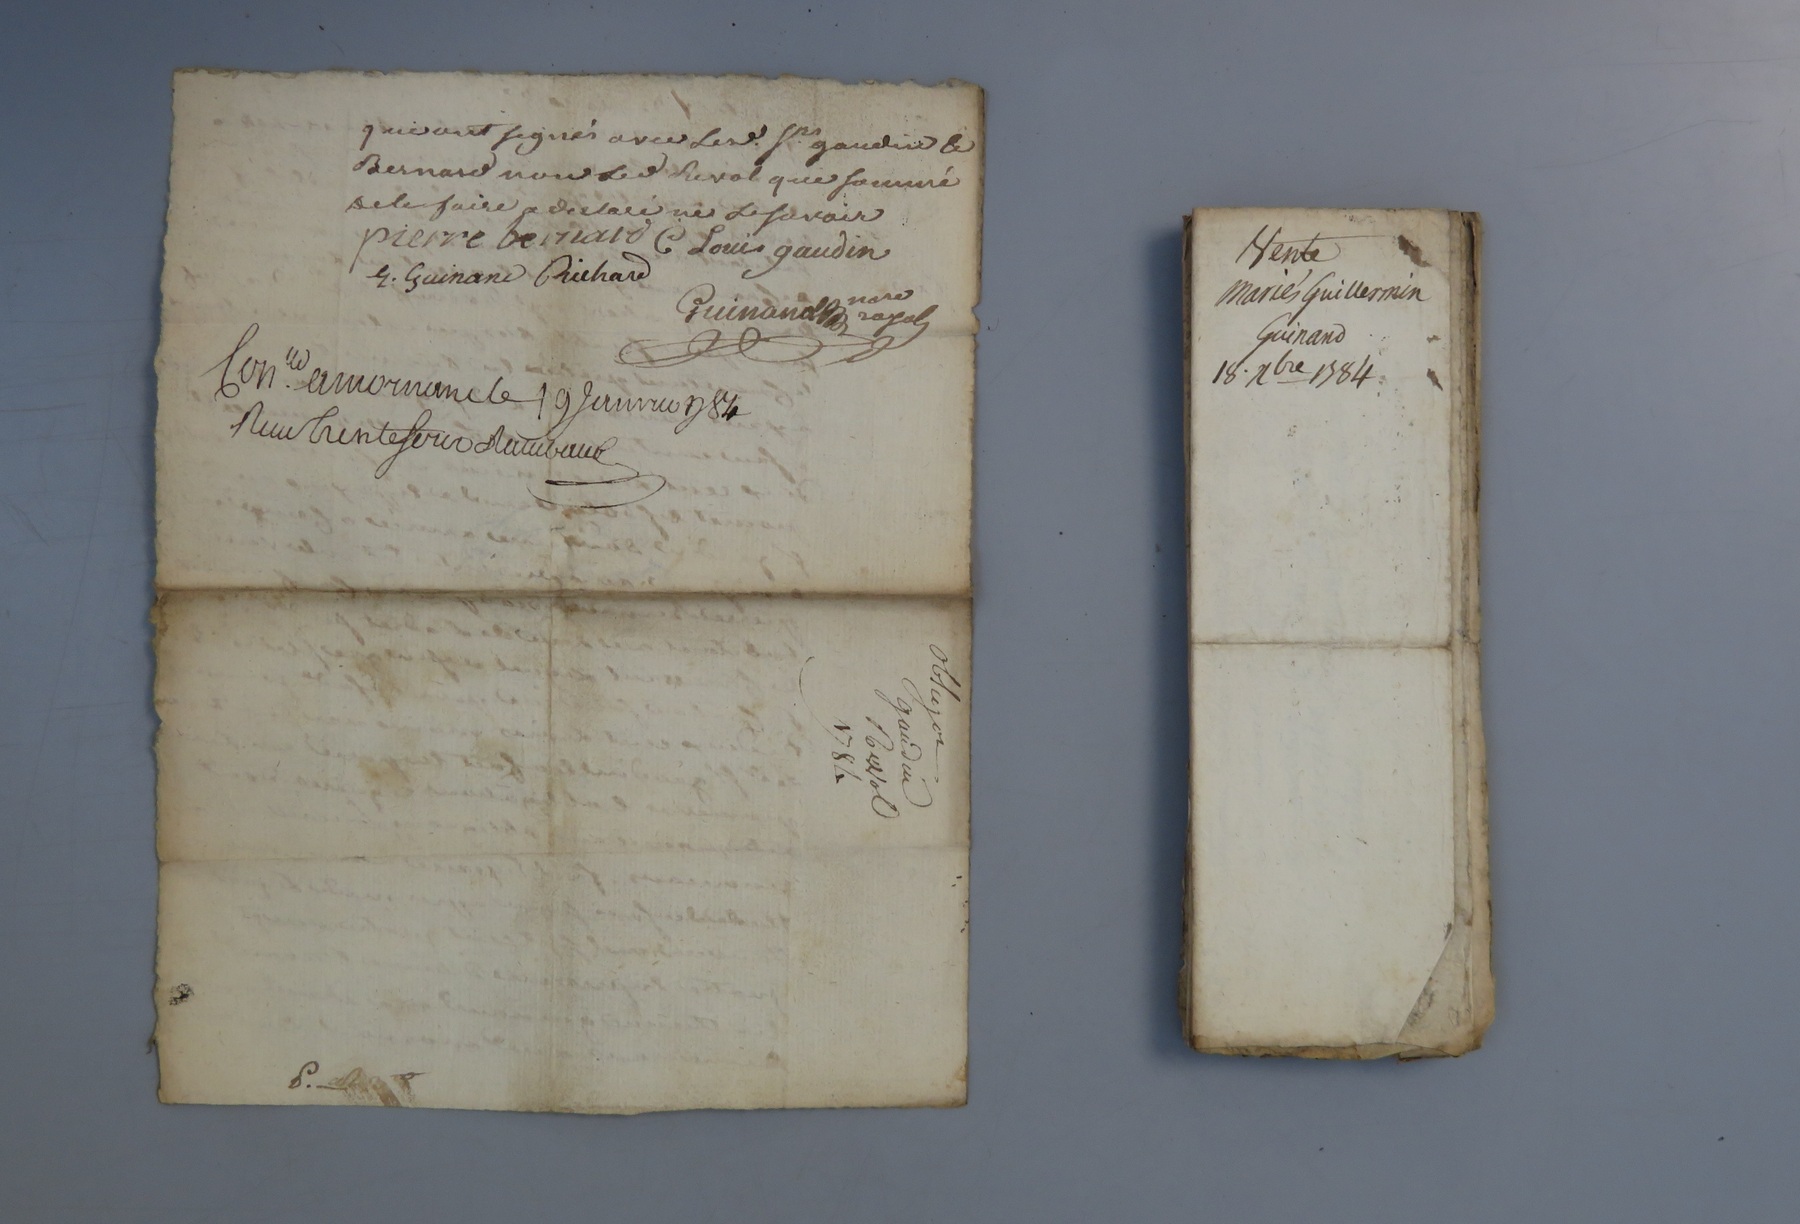 qui ont signés avec lesd. Srs gaudin &
Bernard non led Revol que sommé
de le faire a declaré ne le savoir
pierre bernard C Louis gaudin
Guinand Richard
Guinand nore royal
Con.lé a mornan le 19 Janvier 1784
Reçu trente sous
Obligaon
gaudin
Revol
1784
Vente
Mariés Guillermin
Guinand
18. Xbre 1784.